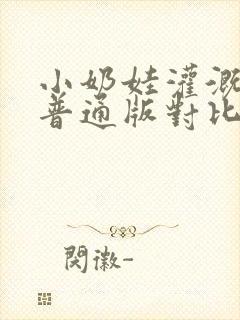 小奶娃灌溉
普通版對比
閔徽-